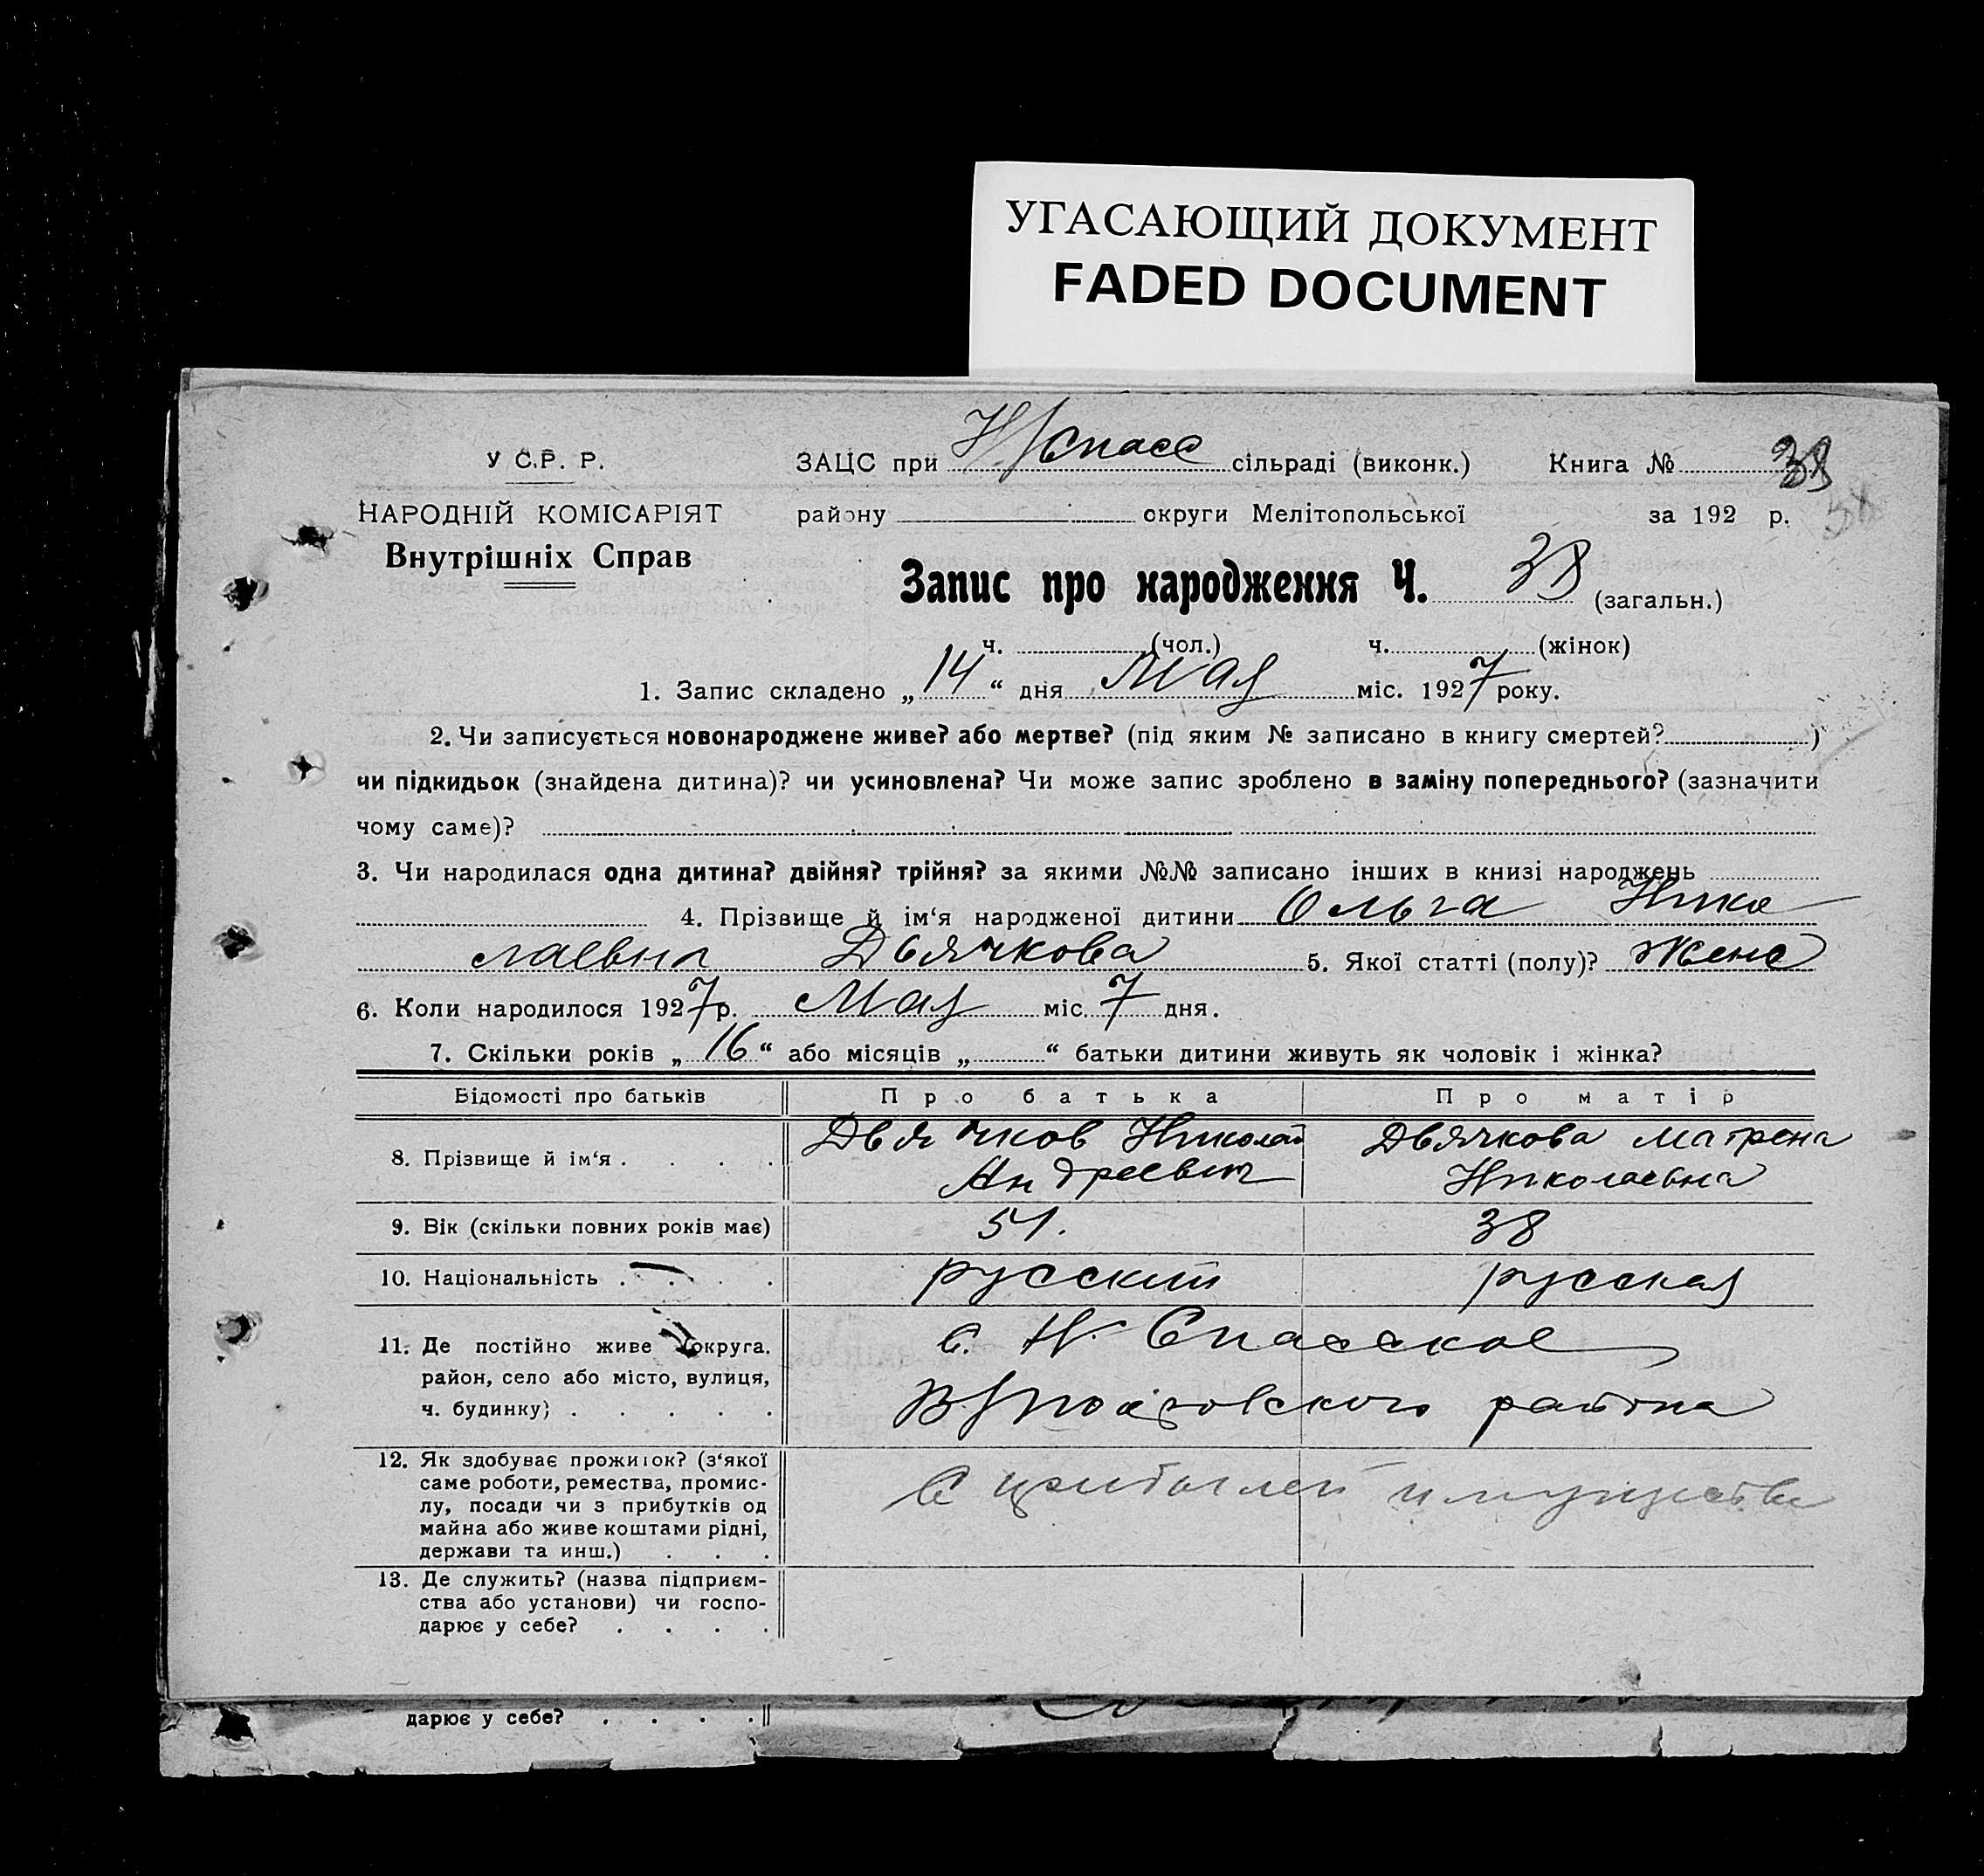 УГАСАЮЩИЙ ДОКУМЕНТ
FADED DOCUMENT
У С.Р. Р.
НАРОДНІЙ КОМІСАРІЯТ
Внутрішніх Справ
ЗАЦС при Н Спасс сільраді (виконк.) Книга №
району округи Мелітопольської за 192 р.
Запис про народження Ч. 38 (загальн.)
ч. (чол.) ч. (жінок)
1. Запис складено „14“ дня Мая міс. 1927 року.
2. Чи записується новонароджене живе? або мертве? (під яким № записано в книгу смертей? )
чи підкидьок (знайдена дитина)? чи усиновлена? Чи може запис зроблено в заміну попереднього? (зазначити
чому саме)?
3. Чи народилася одна дитина? двійня? трійня? за якими №№ записано інших в книзі народжень
4. Прізвище й ім‘я народженої дитини Ольга Нико
лаевна Дьячкова 5. Якої статті (полу)? Жене
6. Коли народилося 1927 р. Мая міс. 7 дня.
7. Скільки років „16“ або місяців „ “ батьки дитини живуть як чоловік і жінка?
Відомості про батьків Про батька Про матір
8. Прізвище й ім‘я . . . . Дьячков Николай Дьячкова Матрена
Андреевич Николаевна
9. Вік (скільки повних років має) 51. 38
10. Національність . . . . русский русская
11. Де постійно живе (округа. с. Н. Спасское
район, село або місто, вулиця,
ч. будинку) . . . . . района
12. Як здобуває прожиток? (з‘якої
саме роботи, ремества, промис-
лу, посади чи з прибутків од
майна або живе коштами рідні,
держави та инш.) . . .
С имущества
13. Де служить? (назва підприєм-
ства або установи) чи госпо-
дарює у себе? . . . .
дарює у себе? . . . .